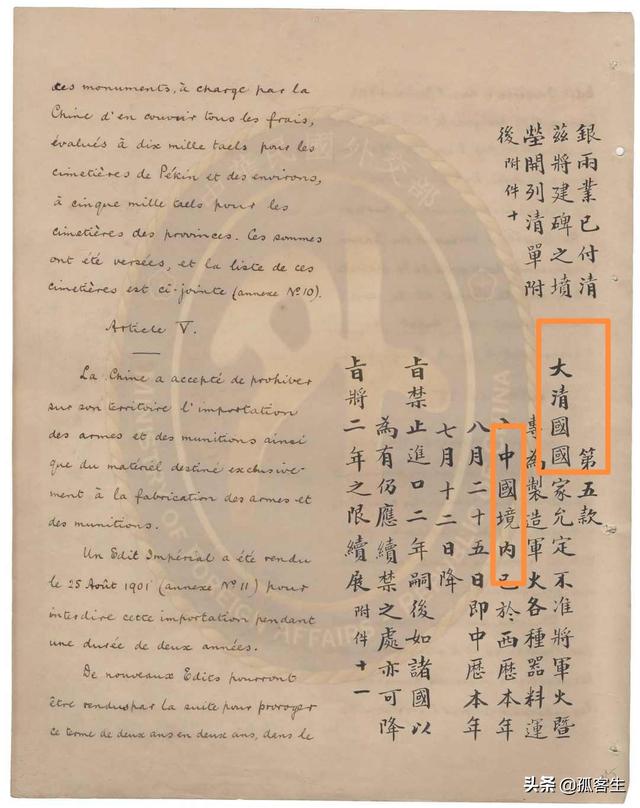 ces monuments, à charge par la
Chine d'en couvrir tous les frais,
évalués à dix mille taels pour les
cimetières de Pékin et des environs,
à cinque mille taels pour les
cimetières des provinces. Ces sommes
ont été versées, et la liste de ces
cimetières est ci-jointe (annexe No 10).
Article V.
La Chine a accepté de prohiber
sur son territoire l'importation
des armes et des munitions ainsi
que du matériel destiné exclusive-
ment à la fabrication des armes et
des munitions.
Un Edit Impérial a été rendu
le 25 Août 1901 (annexe No 11) pour
interdire cette importation pendant
une durée de deux années.
De nouveaux Edits pourront
être rendus par la suite pour proroger
ce terme de deux ans en deux ans, dans le
銀兩業已付清
茲將建碑之墳
塋開列清單附
後附件十
第五款
大清國國家允定不准將軍火暨
專為製造軍火各種器料運
中國境內已於西歷本年
八月二十五日即中歷本年
七月十二日降
旨禁止進口二年嗣後如諸國以
為有仍應續禁之處亦可降
旨將二年之限續展附件十一
外交部
OF FOREIGN AFFAIRS
头条 @孤客生